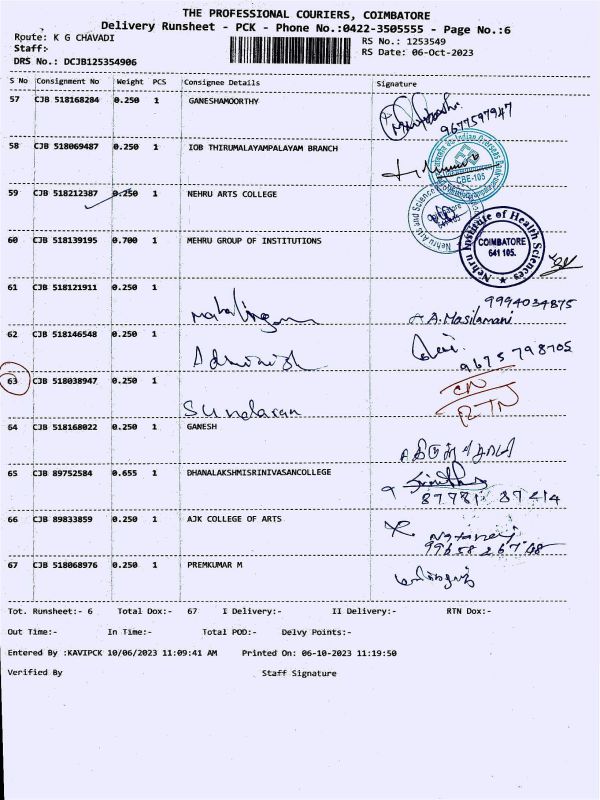 THE PROFESSIONAL COURIERS, COIMBATORE
Delivery Runsheet - PCK - Phone No.:0422-3505555 - Page No.:6
Route: K G CHAVADI
RS No.: 1253549
Staff:-
RS Date: 06-Oct-2023
DRS No.: DCJB125354906
S No Consignment No Weight PCS Consignee Details Signature
57 CJB 518168284 0.250 1 GANESHAMOORTHY
9677597947
58 CJB 518069487 0.250 1 IOB THIRUMALAYAMPALAYAM BRANCH
CBE-105
59 CJB 518212387 0.250 1 NEHRU ARTS COLLEGE
Nehru Arts and Science
60 CJB 518139195 0.700 1 MEHRU GROUP OF INSTITUTIONS
Nehru Institute of Health Sciences
COIMBATORE
641 105.
61 CJB 518121911 0.250 1 Mahalingam
9994034875
A. Masilamani
62 CJB 518146548 0.250 1
9675798705
63 CJB 518038947 0.250 1 Sundaran
RTN
64 CJB 518168022 0.250 1 GANESH
65 CJB 89752584 0.655 1 DHANALAKSHMISRINIVASANCOLLEGE
87781 37414
66 CJB 89833859 0.250 1 AJK COLLEGE OF ARTS
Nataraj
99658 267 48
67 CJB 518068976 0.250 1 PREMKUMAR M
Tot. Runsheet:- 6 Total Dox:- 67 I Delivery:- II Delivery:- RTN Dox:-
Out Time:- In Time:- Total POD:- Delvy Points:-
Entered By :KAVIPCK 10/06/2023 11:09:41 AM Printed On: 06-10-2023 11:19:50
Verified By Staff Signature